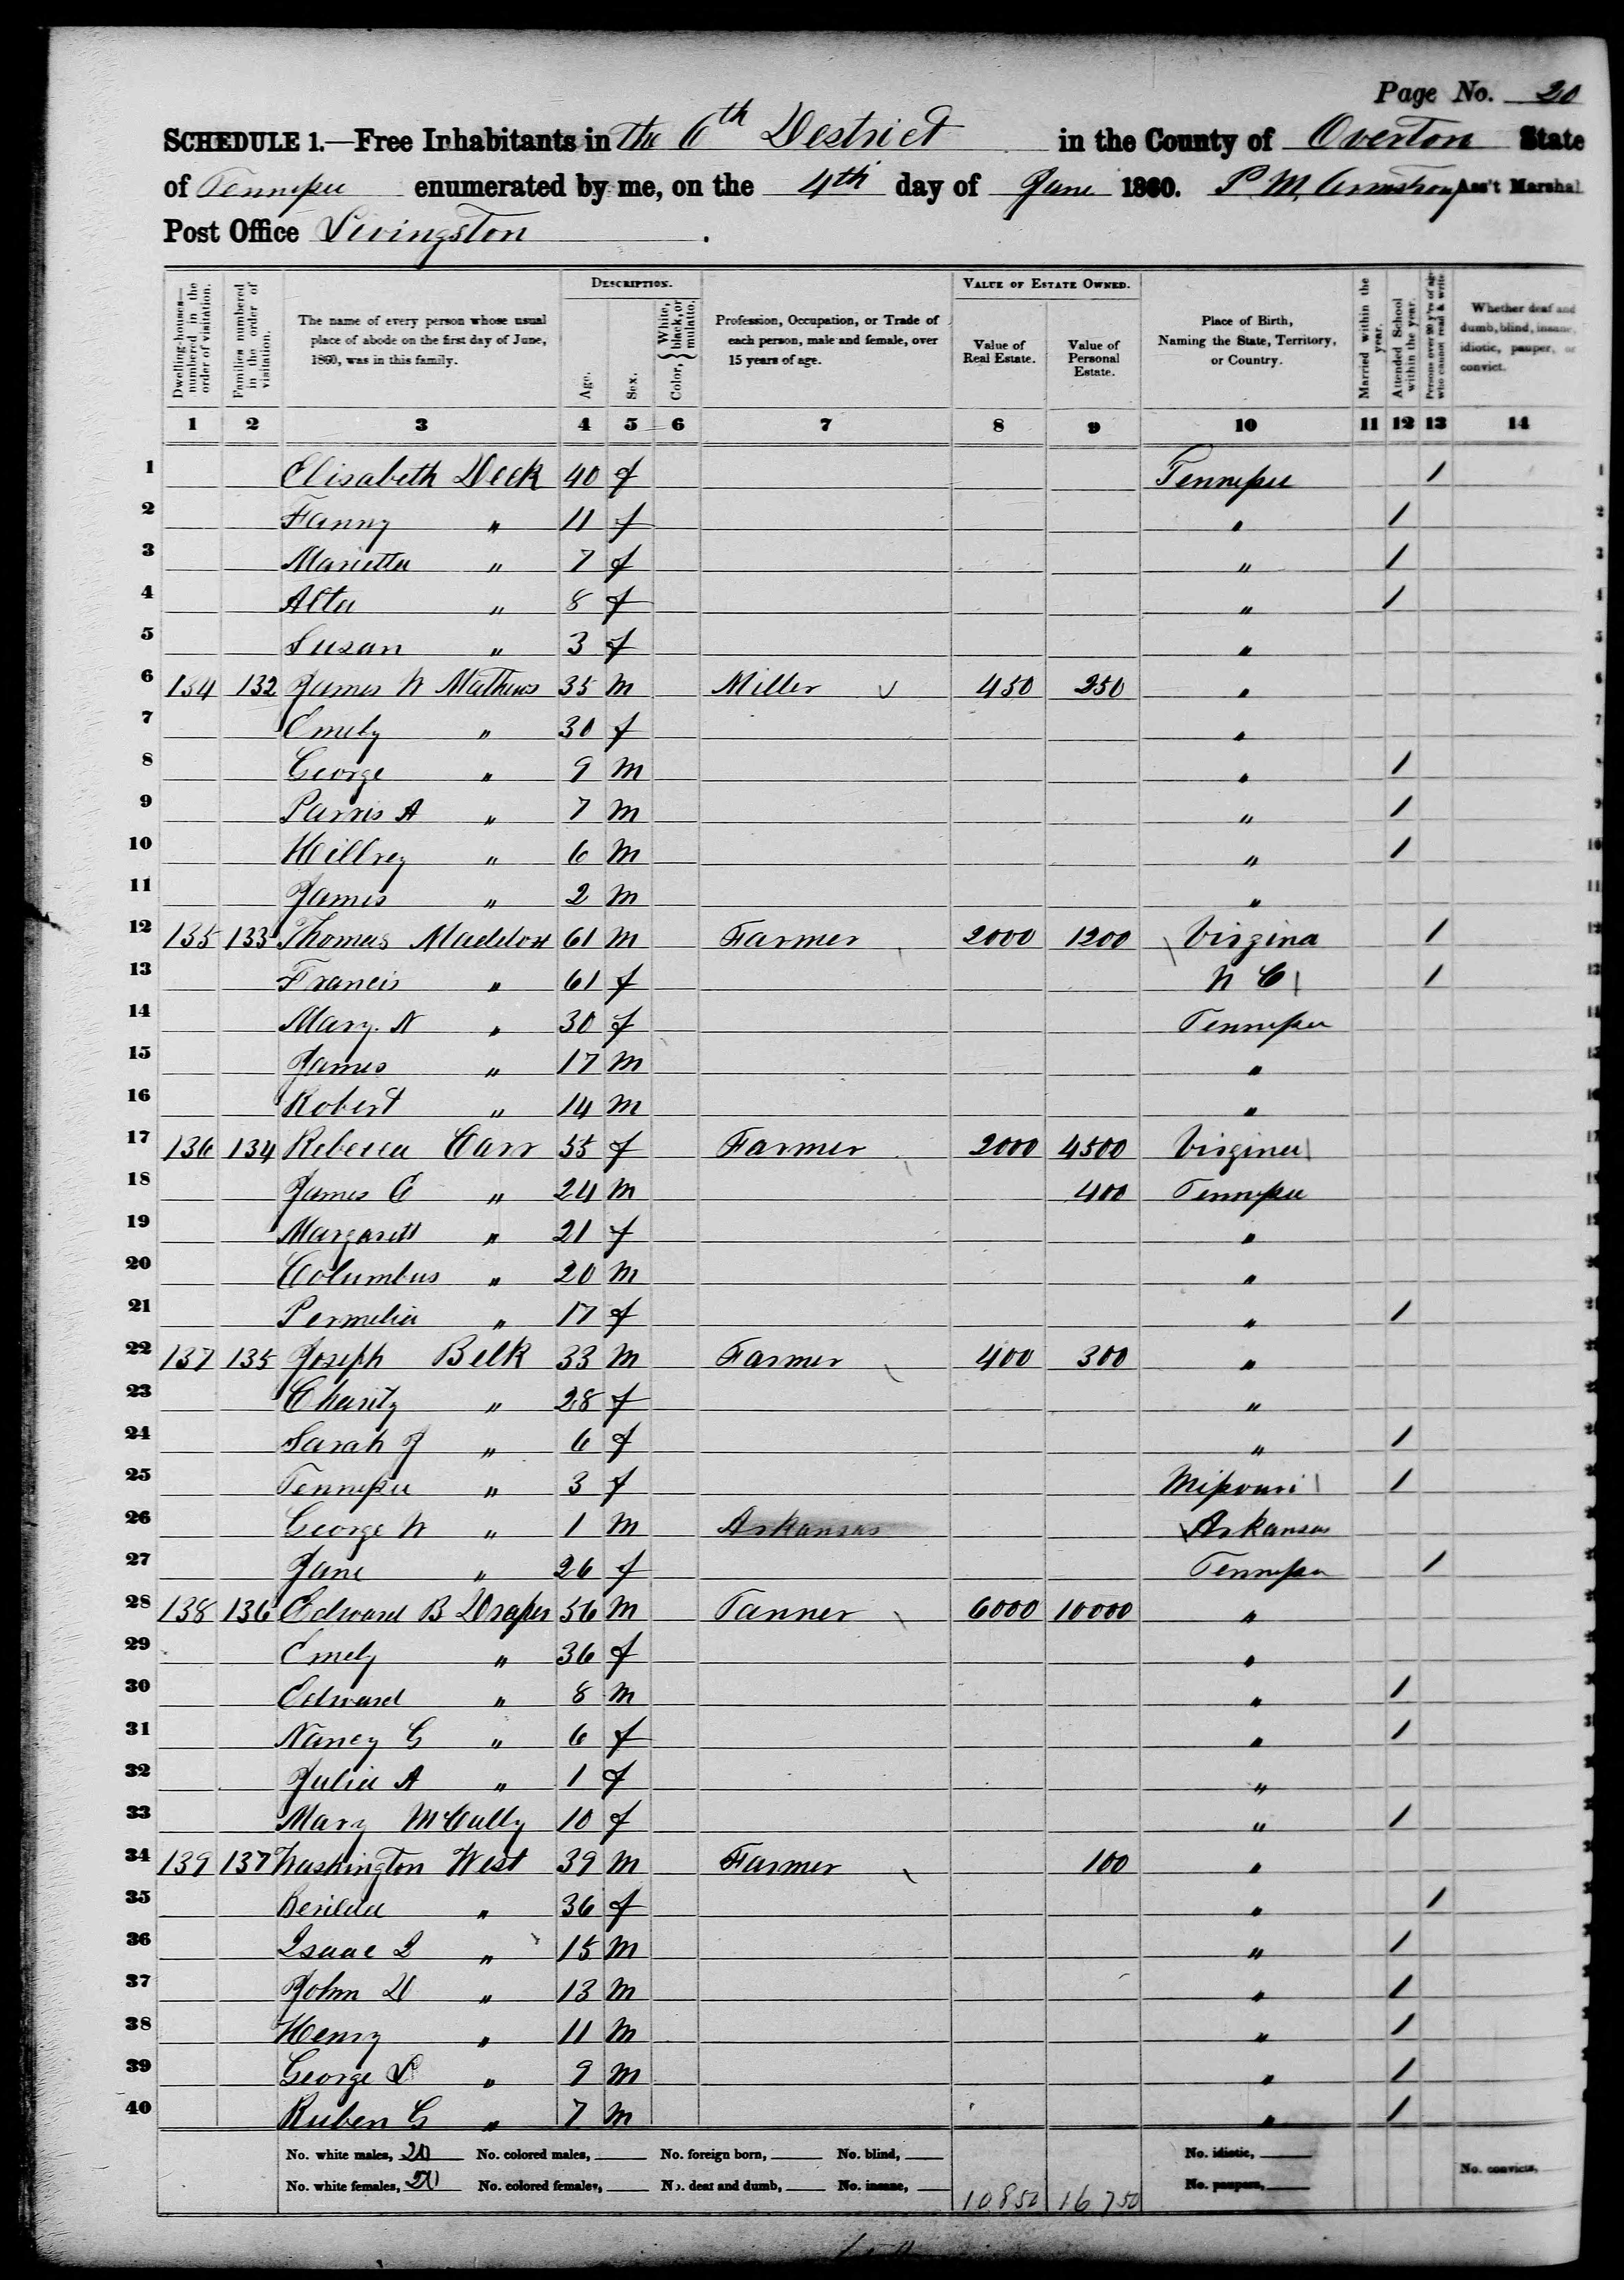 Page No. 20
SCHEDULE 1.—Free Inhabitants in the 6th Destrict in the County of Overton State
of Tennessee enumerated by me, on the 4th day of June 1860. P. M. Armstrong Ass't Marshal
Post Office Livingston.
Dwelling-houses—numbered in the order of visitation.
Families numbered in the order of visitation.
The name of every person whose usual place of abode on the first day of June, 1860, was in this family.
Description.
Age.
Sex.
Color, White, black, or mulatto.
Profession, Occupation, or Trade of each person, male and female, over 15 years of age.
Value of Estate Owned.
Value of Real Estate.
Value of Personal Estate.
Place of Birth, Naming the State, Territory, or Country.
Married within the year.
Attended School within the year.
Persons over 20 y'rs of age who cannot read & write
Whether deaf and dumb, blind, insane, idiotic, pauper, or convict.
1 2 3 4 5 6 7 8 9 10 11 12 13 14
1 Elisabeth Deck 40 f Tennessee 1
2 Fanny " 11 f " 1
3 Marietta " 7 f " 1
4 Alta " 8 f " 1
5 Susan " 3 f "
6 134 132 James W Mathews 35 m Miller 450 250 "
7 Emely " 30 f "
8 George " 9 m " 1
9 Parris A " 7 m " 1
10 " 6 m " 1
11 James " 2 m "
12 135 133 Thomas Maddox 61 m Farmer 2000 1200 Virgina 1
13 Francis " 61 f N C 1
14 Mary N " 30 f Tennessee
15 James " 17 m "
16 Robert " 14 m "
17 136 134 Rebecca Carr 55 f Farmer 2000 4500 Virgina
18 James C " 24 m 400 Tennessee
19 Margarett " 21 f "
20 Columbus " 20 m "
21 Permelia " 17 f " 1
22 137 135 Joseph Belk 33 m Farmer 400 300 "
23 Charity " 28 f "
24 Sarah J " 6 f " 1
25 Tennessee " 3 f Missouri 1
26 George W " 1 m Arkansas Arkansas
27 Jane " 26 f Tennessee 1
28 138 136 Edward B Draper 56 m Tanner 6000 10000 "
29 Emely " 36 f "
30 Edward " 8 m " 1
31 Nancy G " 6 f " 1
32 Julia A " 1 f "
33 Mary McCully 10 f " 1
34 139 137 Washington West 39 m Farmer 100 "
35 " 36 f " 1
36 Isaac " 15 m " 1
37 John D " 13 m " 1
38 Henry " 11 m " 1
39 George " 9 m " 1
40 Ruben G " 7 m " 1
No. white males, 20 No. colored males, No. foreign born, No. blind, No. idiotic,
No. white females, 20 No. colored females, No. deaf and dumb, No. insane, 10850 16750 No. paupers, No. convicts,